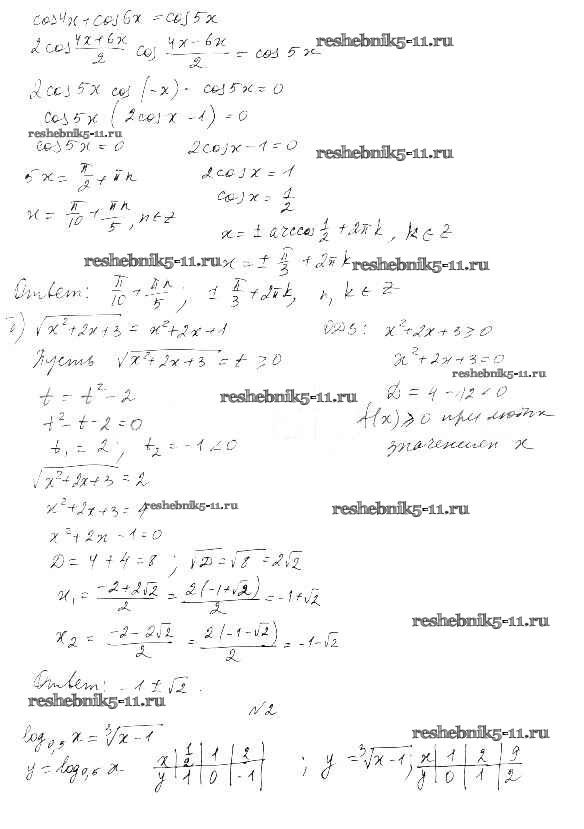 cos4x + cos6x = cos5x
2cos (4x+6x)/2 cos (4x-6x)/2 = cos 5x
reshebnik5-11.ru
2cos5x cos(-x) - cos5x = 0
cos5x (2cosx - 1) = 0
reshebnik5-11.ru
cos5x = 0 2cosx - 1 = 0
reshebnik5-11.ru
5x = π/2 + πn 2cosx = 1
cosx = 1/2
x = π/10 + πn/5, n∈Z
x = ± arccos 1/2 + 2πk, k∈Z
reshebnik5-11.ru x = ± π/3 + 2πk reshebnik5-11.ru
Ответ: π/10 + πn/5; ± π/3 + 2πk, n, k ∈ Z
б) √(x²+2x+3) = x²+2x+1 ОДЗ: x²+2x+3 ≥ 0
Пусть √(x²+2x+3) = t ≥ 0 x²+2x+3 = 0
reshebnik5-11.ru
t = t² - 2 reshebnik5-11.ru D = 4 - 12 < 0
t² - t - 2 = 0 f(x) ≥ 0 при любых
t₁ = 2; t₂ = -1 < 0 значениях x
√(x²+2x+3) = 2
x²+2x+3 = 4 reshebnik5-11.ru reshebnik5-11.ru
x²+2x-1=0
D = 4 + 4 = 8; √D = √8 = 2√2
x₁ = (-2+2√2)/2 = 2(-1+√2)/2 = -1+√2
reshebnik5-11.ru
x₂ = (-2-2√2)/2 = 2(-1-√2)/2 = -1-√2
Ответ: -1 ± √2.
reshebnik5-11.ru
№2
log₀,₅ x = ∛(x-1) reshebnik5-11.ru
y = log₀,₅ x x | 1/2 | 1 | 2 ; y = ∛(x-1); x | 1 | 2 | 9
y | 1 | 0 | -1 y | 0 | 1 | 2